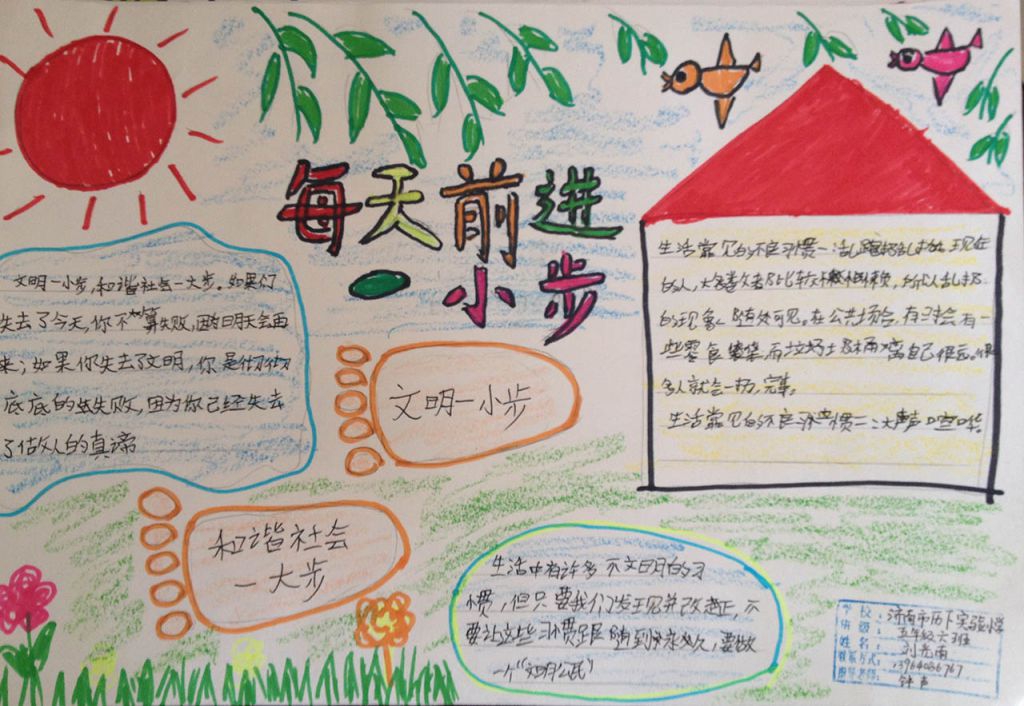 每天前进
一小步
文明一小步,和谐社会一大步。如果们
失去了今天,你不算失败,因为明天会再
来;如果你失去了文明,你是彻彻
底底的失败,因为你已经失去
了做人的真谛
文明一小步
和谐社会
一大步
生活常见的不良习惯一:乱踢乱扔。现在
的人,大多数都比较懒,所以乱扔
的现象随处可见。在公共场合,有时会有一
些零食袋而垃圾桶离自己很近,很
多人就会一扔,完事。
生活常见的不良习惯二:大声喧哗
生活中有许多不文明的习
惯,但只要我们发现并改正,不
要让这些习惯跟随到永久,要做
一个“文明公民”
学校:济南市历下实验小学
班级:五年级六班
姓名:刘雨
联系方式:13964086767
指导老师:钟声